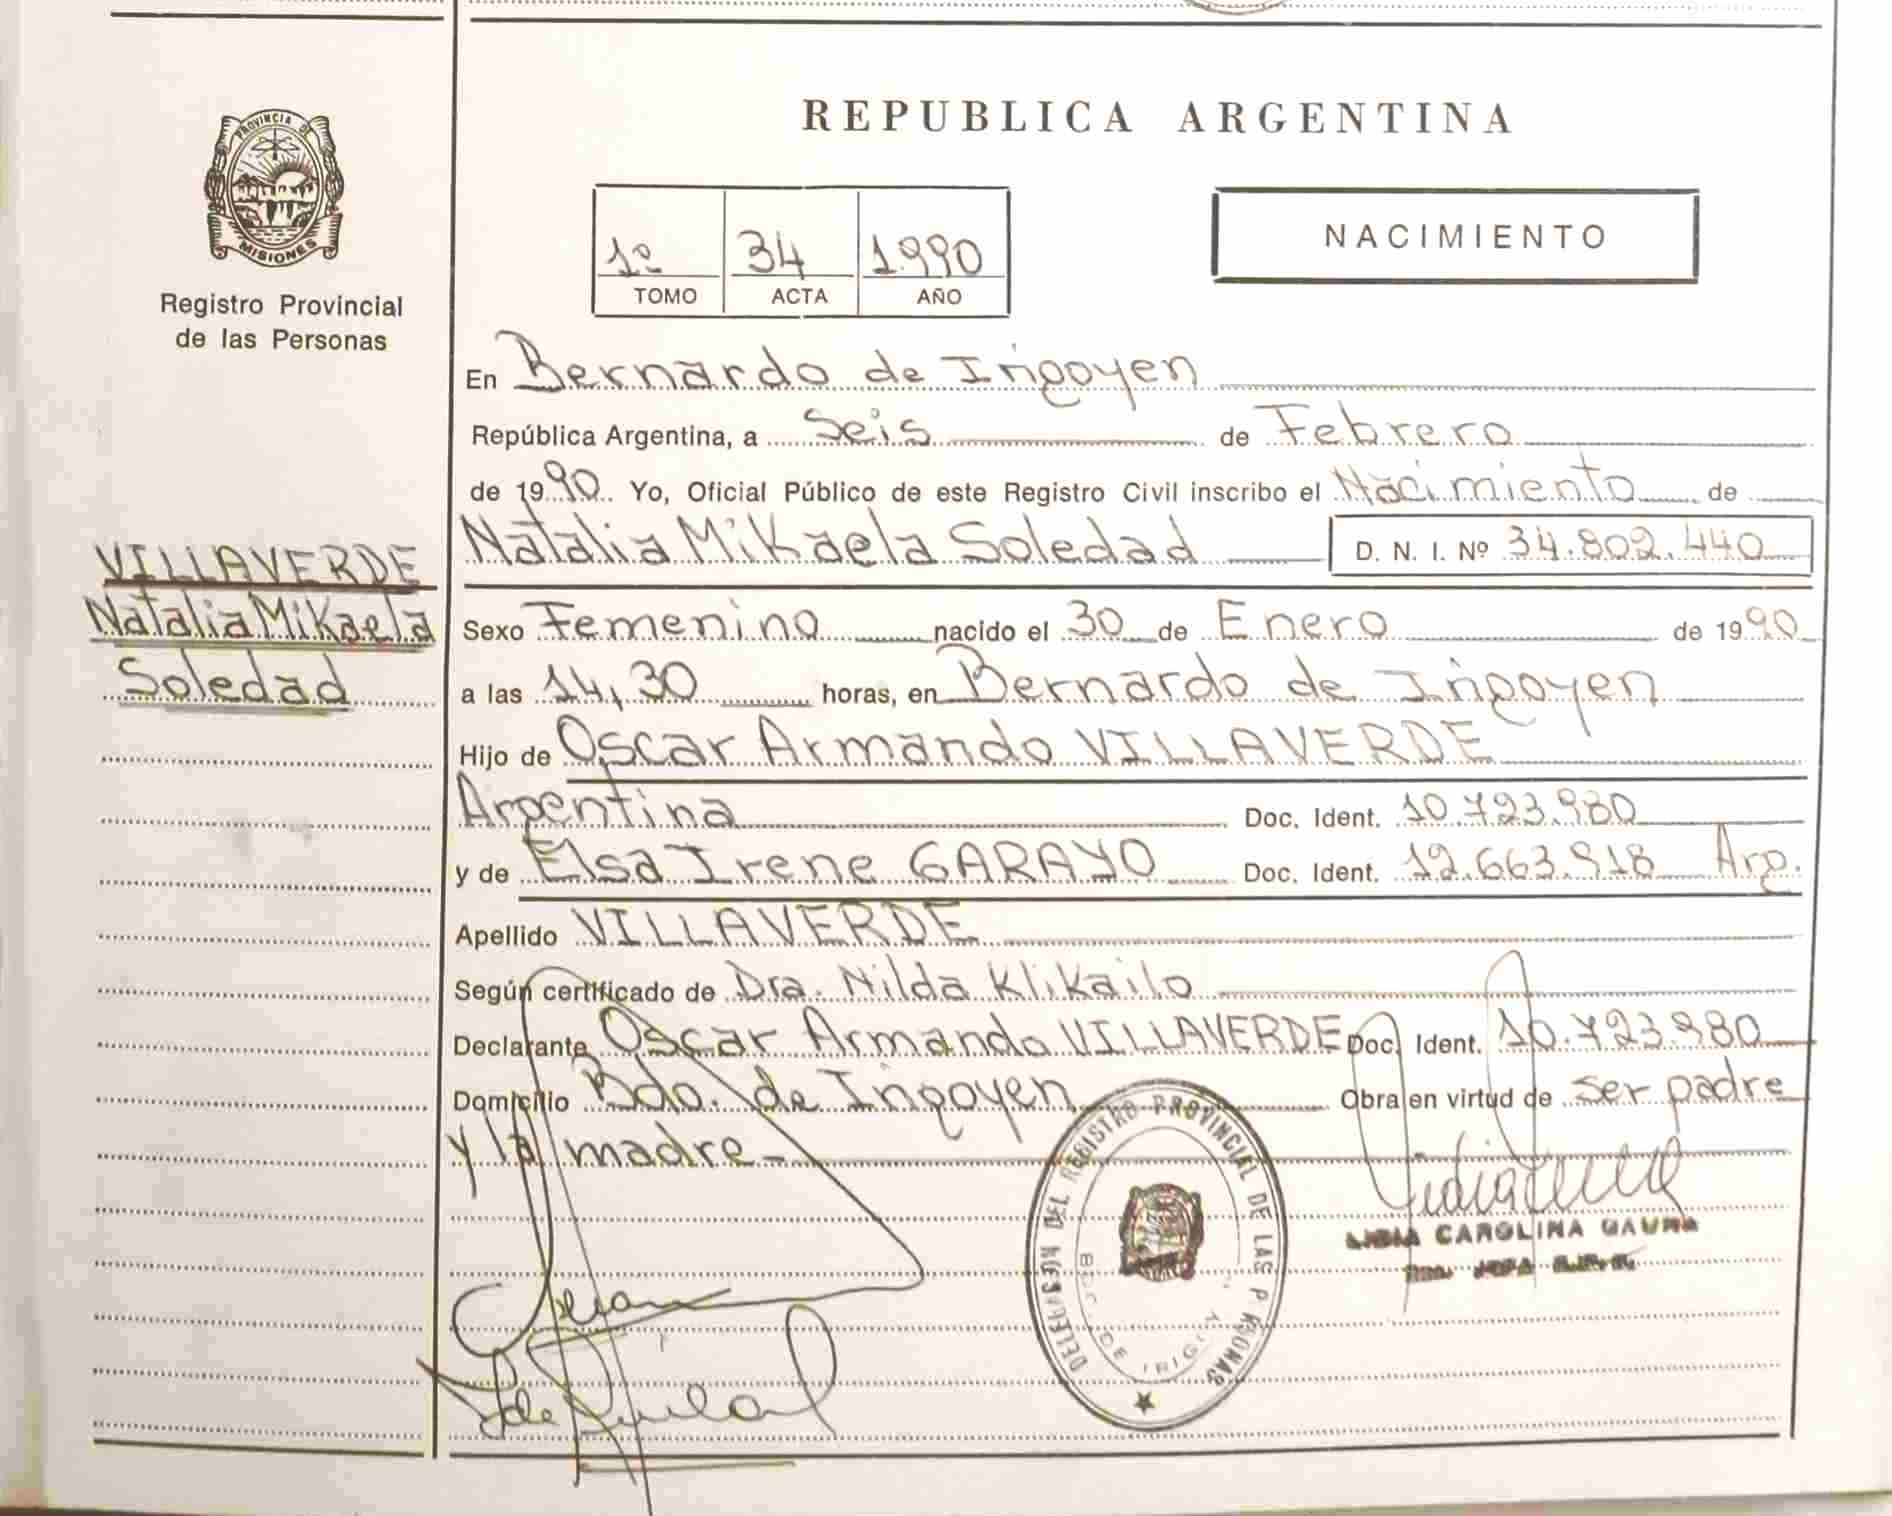 REPUBLICA ARGENTINA
PROVINCIA DE
MISIONES
Registro Provincial
de las Personas
1º 34 1.990
TOMO ACTA AÑO
NACIMIENTO
En Bernardo de Irigoyen
República Argentina, a Seis de Febrero
de 1990. Yo, Oficial Público de este Registro Civil inscribo el Nacimiento de
Natalia Mikaela Soledad D. N. I. Nº 34.802.440
VILLAVERDE
Natalia Mikaela
Soledad
Sexo Femenino nacido el 30 de Enero de 1990
a las 14,30 horas, en Bernardo de Irigoyen
Hijo de Oscar Armando VILLAVERDE
Argentina Doc. Ident. 10.723.980
y de Elsa Irene GARAYO Doc. Ident. 12.663.918 Arg.
Apellido VILLAVERDE
Según certificado de Dra. Nilda Klikailo
Declarante Oscar Armando VILLAVERDE Doc. Ident. 10.723.980
Domicilio Bdo. de Irigoyen Obra en virtud de ser padre
y la madre
DELEGACION DEL REGISTRO PROVINCIAL DE LAS PERSONAS
LIDIA CAROLINA